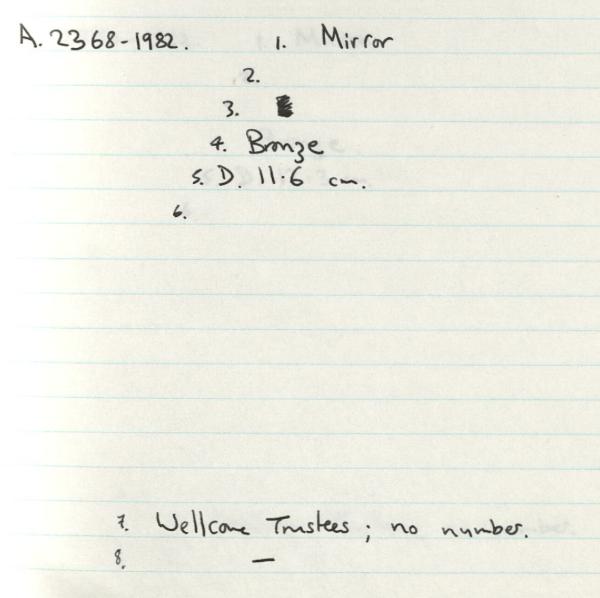 A. 2368-1982. 1. Mirror
2.
3.
4. Bronze
5. D. 11.6 cm.
6.
7. Wellcome Trustees; no number.
8. —